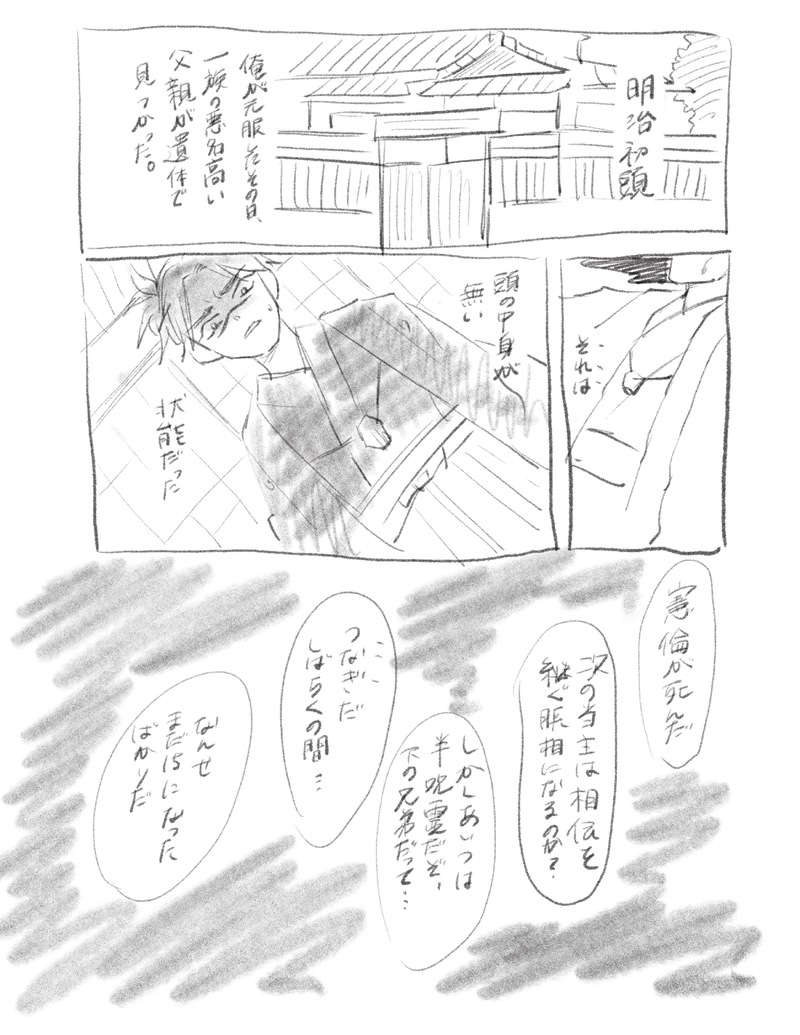 明治初頭
俺が元服したその日、
一族の悪名高い
父親が遺体で
見つかった。
それは
頭の中身が
無い
状態だった
憲倫が死んだ
次の当主は相伝を
継ぐ脹相になるのか？
しかしあいつは
半呪霊だぞ、
下の兄弟だって…
つなぎだ
しばらくの間…
なんせ
まだ15になった
ばかりだ